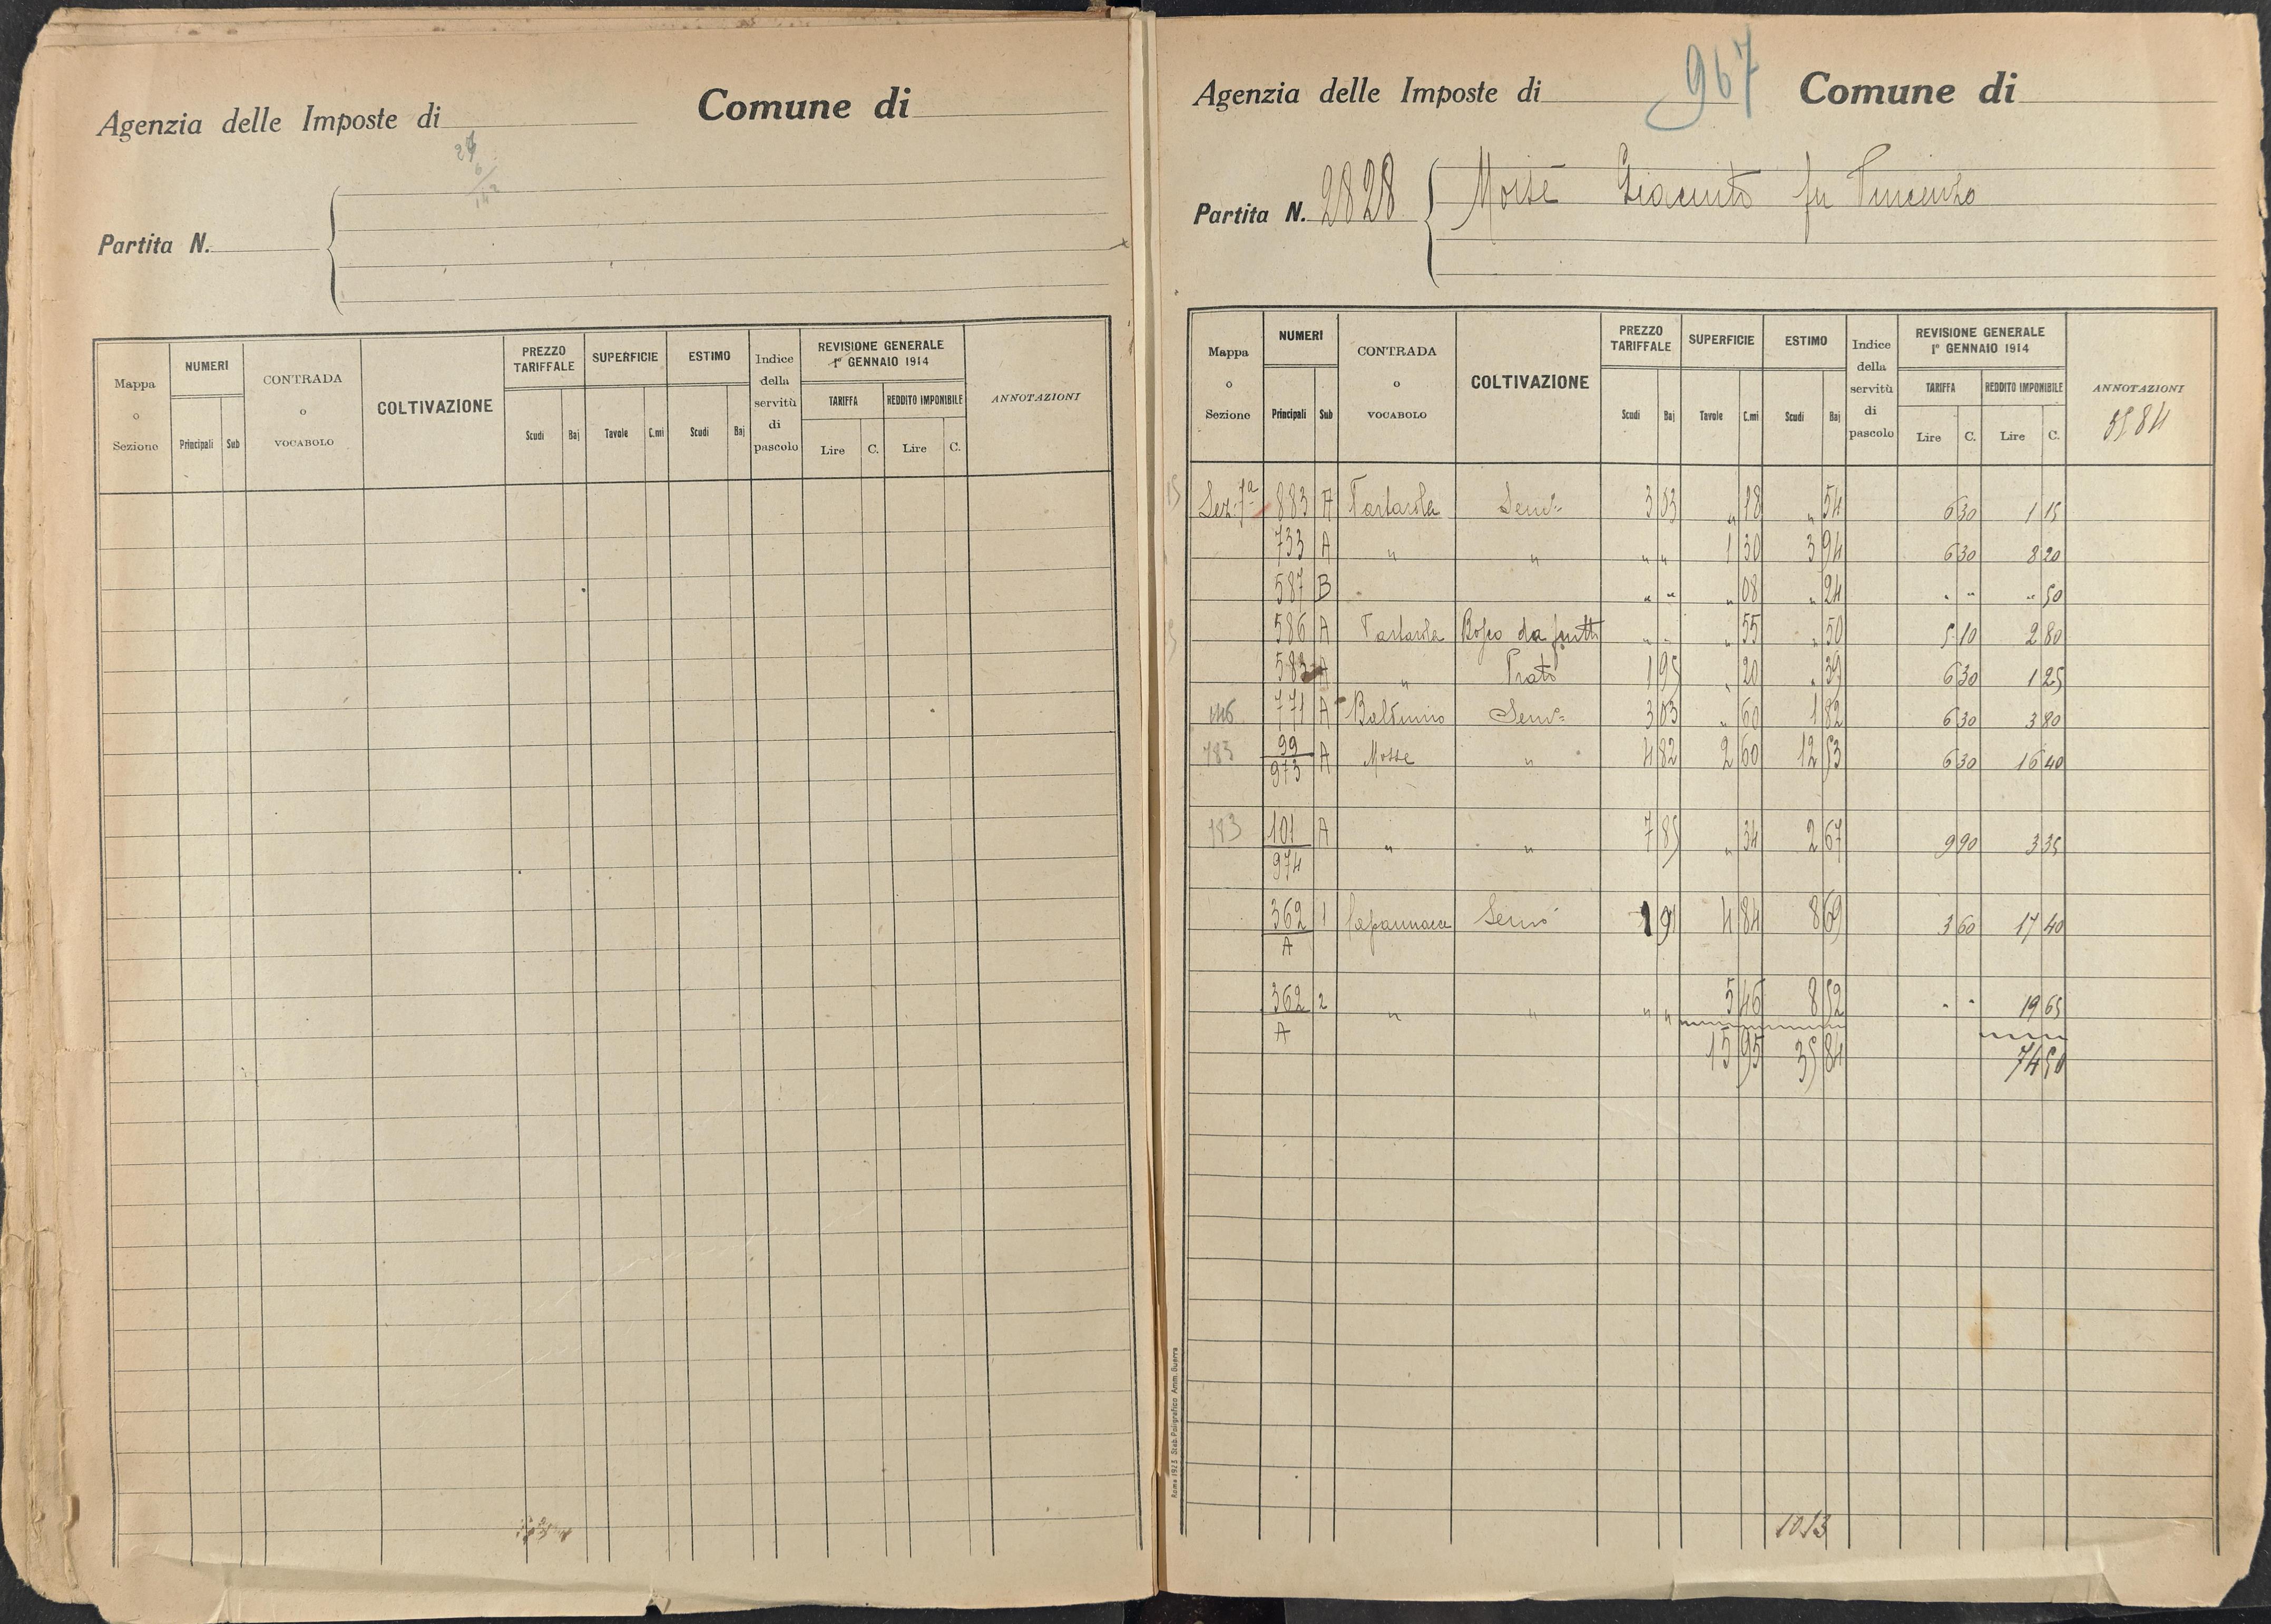 Agenzia delle Imposte di
Comune di
Partita N.
Mappa o Sezione
NUMERI
Principali
Sub
CONTRADA o VOCABOLO
COLTIVAZIONE
PREZZO TARIFFALE
Scudi
Baj
SUPERFICIE
Tavole
C.mi
ESTIMO
Scudi
Baj
Indice della servitù di pascolo
REVISIONE GENERALE
1° GENNAIO 1914
TARIFFA
Lire
C.
REDDITO IMPONIBILE
Lire
C.
ANNOTAZIONI
967
Agenzia delle Imposte di
Comune di
Partita N. 2828
Moisè Giacinto fu Vincenzo
Mappa o Sezione
NUMERI
Principali
Sub
CONTRADA o VOCABOLO
COLTIVAZIONE
PREZZO TARIFFALE
Scudi
Baj
SUPERFICIE
Tavole
C.mi
ESTIMO
Scudi
Baj
Indice della servitù di pascolo
REVISIONE GENERALE
1° GENNAIO 1914
TARIFFA
Lire
C.
REDDITO IMPONIBILE
Lire
C.
ANNOTAZIONI
3584
Sez. 7ª 883 A Tartarola Semᵒ 3 03 " 18 " 54 6 30 1 15
733 A " " " " 1 30 3 94 6 30 8 20
587 B " " " 08 " 24 " " " 50
586 A Tartarola Bosco da frutti " " " 55 " 50 5 10 2 80
583 A " Prato 1 95 " 20 " 39 6 30 1 25
146 771 A Semᵒ 3 03 " 60 1 82 6 30 3 80
183 99/973 A Mosse " 4 82 2 60 12 53 6 30 16 40
183 101/974 A " " 7 85 " 34 2 67 9 90 3 35
362/A 1 Capannacce Semᵒ 1 91 4 84 8 69 3 60 17 40
362/A 2 " " " " 5 46 8 52 " " 19 65
15 95 35 84 74 50
1013
Roma 1923 Stab. Poligrafico Amm. Guerra